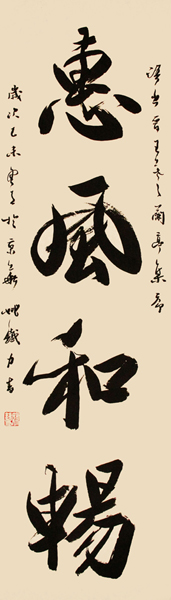 語出晉王羲之蘭亭集序
惠風和暢
歲次未於京華鐵力書